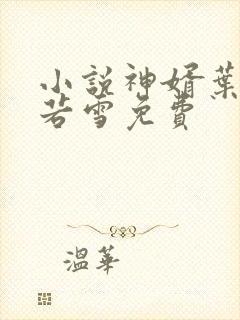 小说神婿葉
若雪免費
溫華